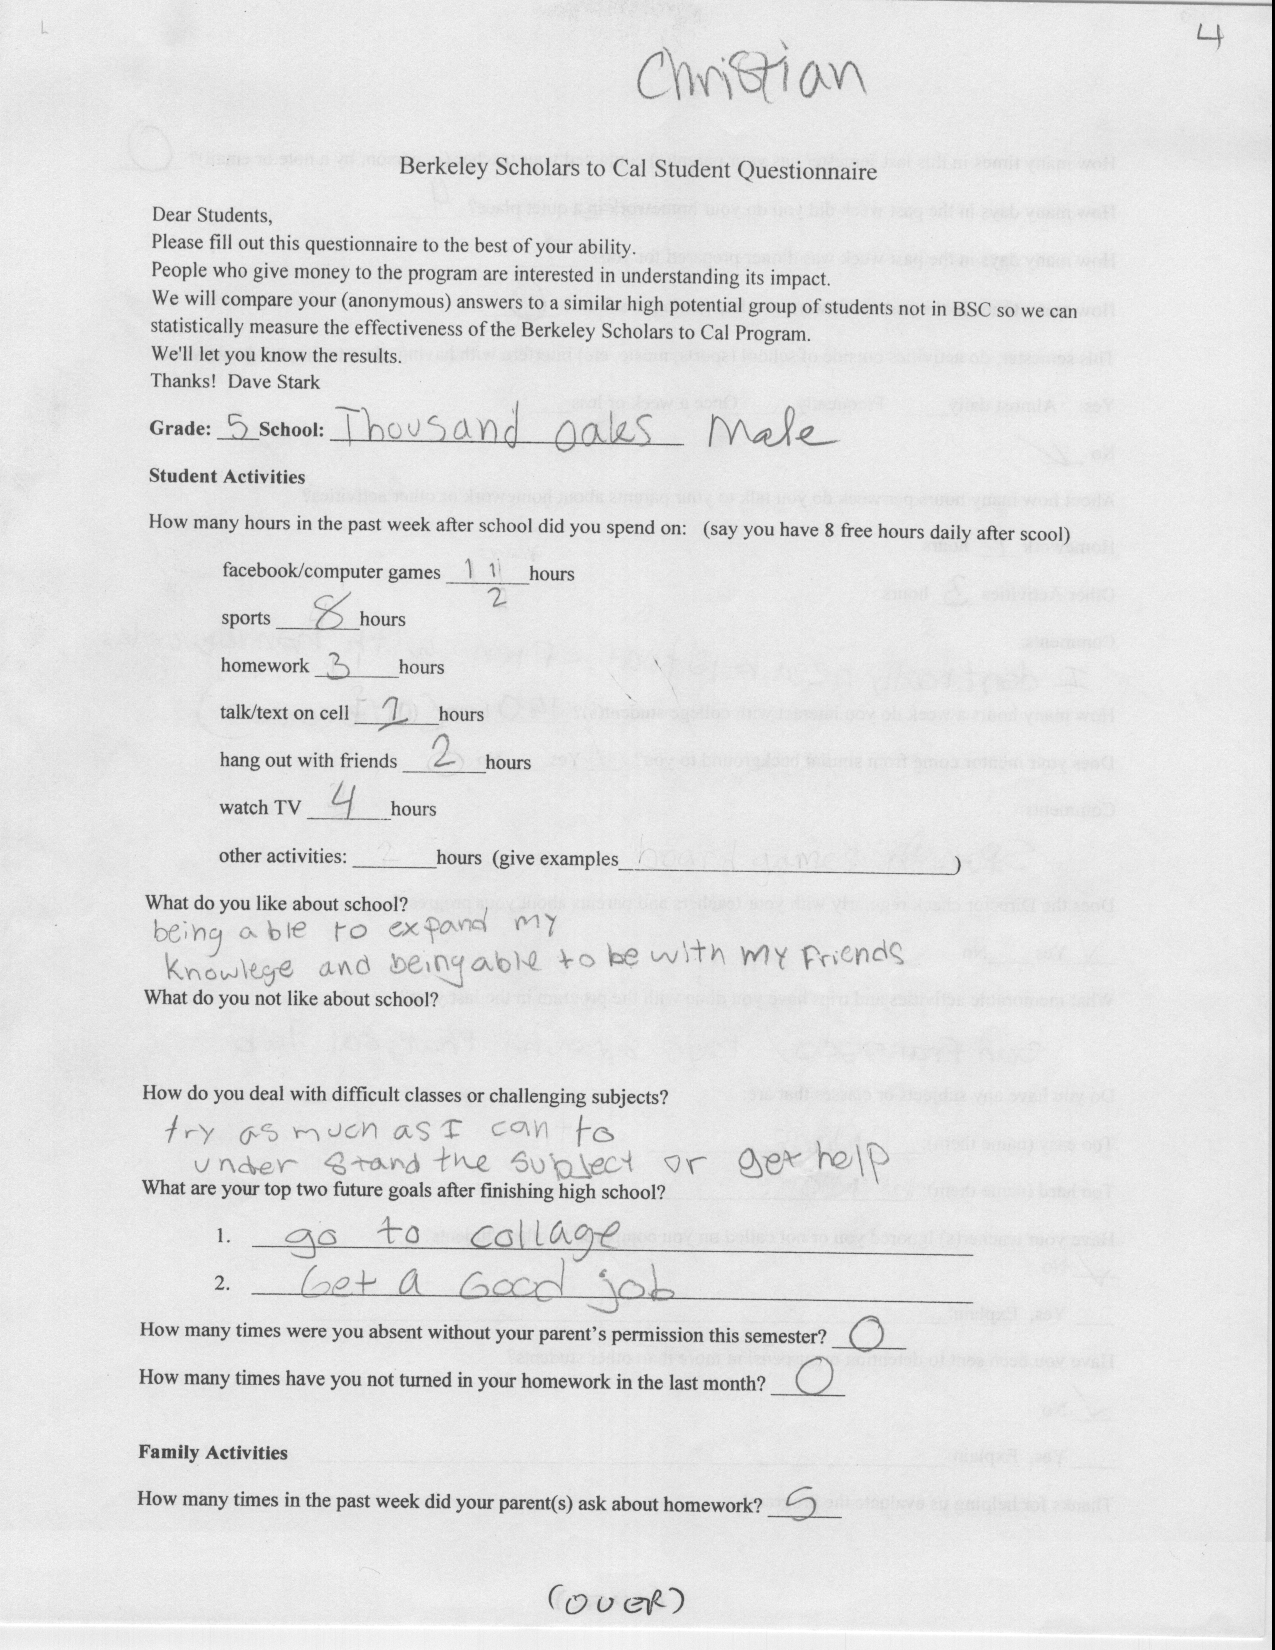 4
Christian
Berkeley Scholars to Cal Student Questionnaire
Dear Students,
Please fill out this questionnaire to the best of your ability.
People who give money to the program are interested in understanding its impact.
We will compare your (anonymous) answers to a similar high potential group of students not in BSC so we can
statistically measure the effectiveness of the Berkeley Scholars to Cal Program.
We'll let you know the results.
Thanks! Dave Stark
Grade: 5 School: Thousand oaks Male
Student Activities
How many hours in the past week after school did you spend on: (say you have 8 free hours daily after scool)
facebook/computer games 1 1/2 hours
sports 8 hours
homework 3 hours
talk/text on cell 2 hours
hang out with friends 2 hours
watch TV 4 hours
other activities: ______ hours (give examples______)
What do you like about school?
being able to expand my
knowlege and being able to be with my friends
What do you not like about school?
How do you deal with difficult classes or challenging subjects?
try as much as I can to
under stand the subject or get help
What are your top two future goals after finishing high school?
1. go to collage
2. Get a Good job
How many times were you absent without your parent's permission this semester? 0
How many times have you not turned in your homework in the last month? 0
Family Activities
How many times in the past week did your parent(s) ask about homework? 5
(OVER)